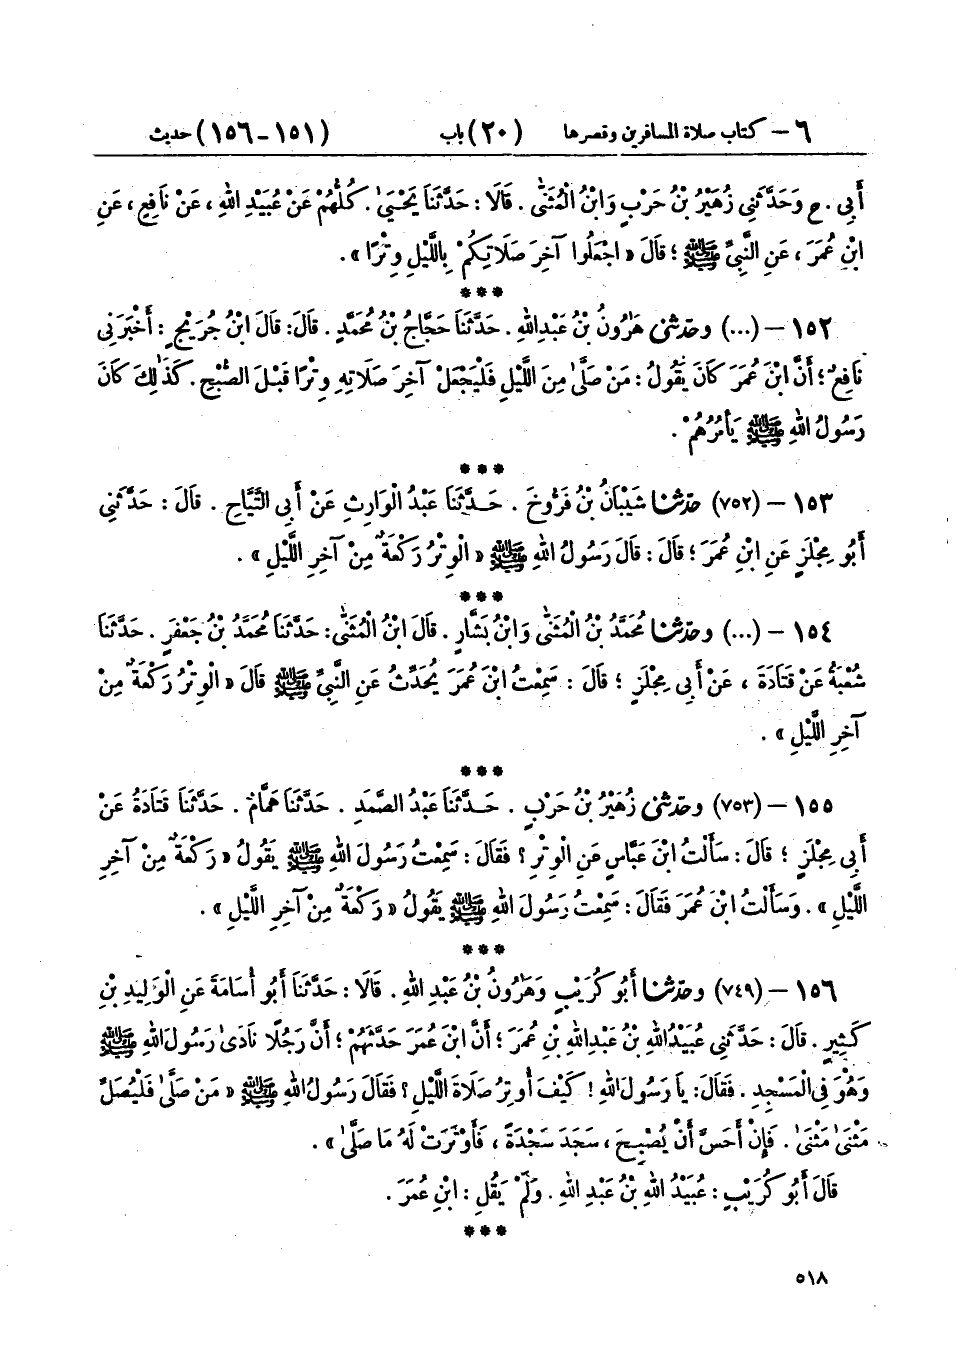 ٦ – كتاب صلاة المسافرين وقصرها (٢٠) باب (١٥١ – ١٥٦) حديث
أَبِي. ح وَحَدَّثَنِي زُهَيْرُ بْنُ حَرْبٍ وَابْنُ الْمُثَنَّى. قَالَا: حَدَّثَنَا يَحْيَىٰ. كُلُّهُمْ عَنْ عُبَيْدِ اللهِ، عَنْ نَافِعٍ، عَنِ
ابْنِ عُمَرَ، عَنِ النَّبِيِّ ﷺ؛ قَالَ « اجْعَلُوا آخِرَ صَلَاتِكُمْ بِاللَّيْلِ وِتْرًا ».
***
١٥٢ – (...) وحَدَّثَنِي هَٰرُونُ بْنُ عَبْدِ اللهِ. حَدَّثَنَا حَجَّاجُ بْنُ مُحَمَّدٍ. قَالَ: قَالَ ابْنُ جُرَيْجٍ: أَخْبَرَنِي
نَافِعٌ؛ أَنَّ ابْنَ عُمَرَ كَانَ يَقُولُ: مَنْ صَلَّىٰ مِنَ اللَّيْلِ فَلْيَجْعَلْ آخِرَ صَلَاتِهِ وِتْرًا قَبْلَ الصُّبْحِ. كَذَٰلِكَ كَانَ
رَسُولُ اللهِ ﷺ يَأْمُرُهُمْ.
***
١٥٣ – (٧٥٢) حَدَّثَنَا شَيْبَانُ بْنُ فَرُّوخَ. حَدَّثَنَا عَبْدُ الْوَارِثِ عَنْ أَبِي التَّيَّاحِ. قَالَ: حَدَّثَنِي
أَبُو مِجْلَزٍ عَنِ ابْنِ عُمَرَ؛ قَالَ: قَالَ رَسُولُ اللهِ ﷺ « الْوِتْرُ رَكْعَةٌ مِنْ آخِرِ اللَّيْلِ ».
***
١٥٤ – (...) وحَدَّثَنَا مُحَمَّدُ بْنُ الْمُثَنَّىٰ وَابْنُ بَشَّارٍ. قَالَ ابْنُ الْمُثَنَّىٰ: حَدَّثَنَا مُحَمَّدُ بْنُ جَعْفَرٍ. حَدَّثَنَا
شُعْبَةُ عَنْ قَتَادَةَ، عَنْ أَبِي مِجْلَزٍ؛ قَالَ: سَمِعْتُ ابْنَ عُمَرَ يُحَدِّثُ عَنِ النَّبِيِّ ﷺ قَالَ « الْوِتْرُ رَكْعَةٌ مِنْ
آخِرِ اللَّيْلِ ».
***
١٥٥ – (٧٥٣) وحَدَّثَنِي زُهَيْرُ بْنُ حَرْبٍ. حَدَّثَنَا عَبْدُ الصَّمَدِ. حَدَّثَنَا هَمَّامٌ. حَدَّثَنَا قَتَادَةُ عَنْ
أَبِي مِجْلَزٍ؛ قَالَ: سَأَلْتُ ابْنَ عَبَّاسٍ عَنِ الْوِتْرِ؟ فَقَالَ: سَمِعْتُ رَسُولَ اللهِ ﷺ يَقُولُ « رَكْعَةٌ مِنْ آخِرِ
اللَّيْلِ ». وَسَأَلْتُ ابْنَ عُمَرَ فَقَالَ: سَمِعْتُ رَسُولَ اللهِ ﷺ يَقُولُ « رَكْعَةٌ مِنْ آخِرِ اللَّيْلِ ».
***
١٥٦ – (٧٤٩) وحَدَّثَنَا أَبُو كُرَيْبٍ وَهَٰرُونُ بْنُ عَبْدِ اللهِ. قَالَا: حَدَّثَنَا أَبُو أُسَامَةَ عَنِ الْوَلِيدِ بْنِ
كَثِيرٍ. قَالَ: حَدَّثَنِي عُبَيْدُ اللهِ بْنُ عَبْدِ اللهِ بْنِ عُمَرَ؛ أَنَّ ابْنَ عُمَرَ حَدَّثَهُمْ؛ أَنَّ رَجُلًا نَادَىٰ رَسُولَ اللهِ ﷺ
وَهُوَ فِي الْمَسْجِدِ. فَقَالَ: يَا رَسُولَ اللهِ! كَيْفَ أُوتِرُ صَلَاةَ اللَّيْلِ؟ فَقَالَ رَسُولُ اللهِ ﷺ « مَنْ صَلَّىٰ فَلْيُصَلِّ
مَثْنَىٰ مَثْنَىٰ. فَإِنْ أَحَسَّ أَنْ يُصْبِحَ، سَجَدَ سَجْدَةً، فَأَوْتَرَتْ لَهُ مَا صَلَّىٰ ».
قَالَ أَبُو كُرَيْبٍ: عُبَيْدُ اللهِ بْنُ عَبْدِ اللهِ. وَلَمْ يَقُلِ: ابْنِ عُمَرَ.
***
٥١٨